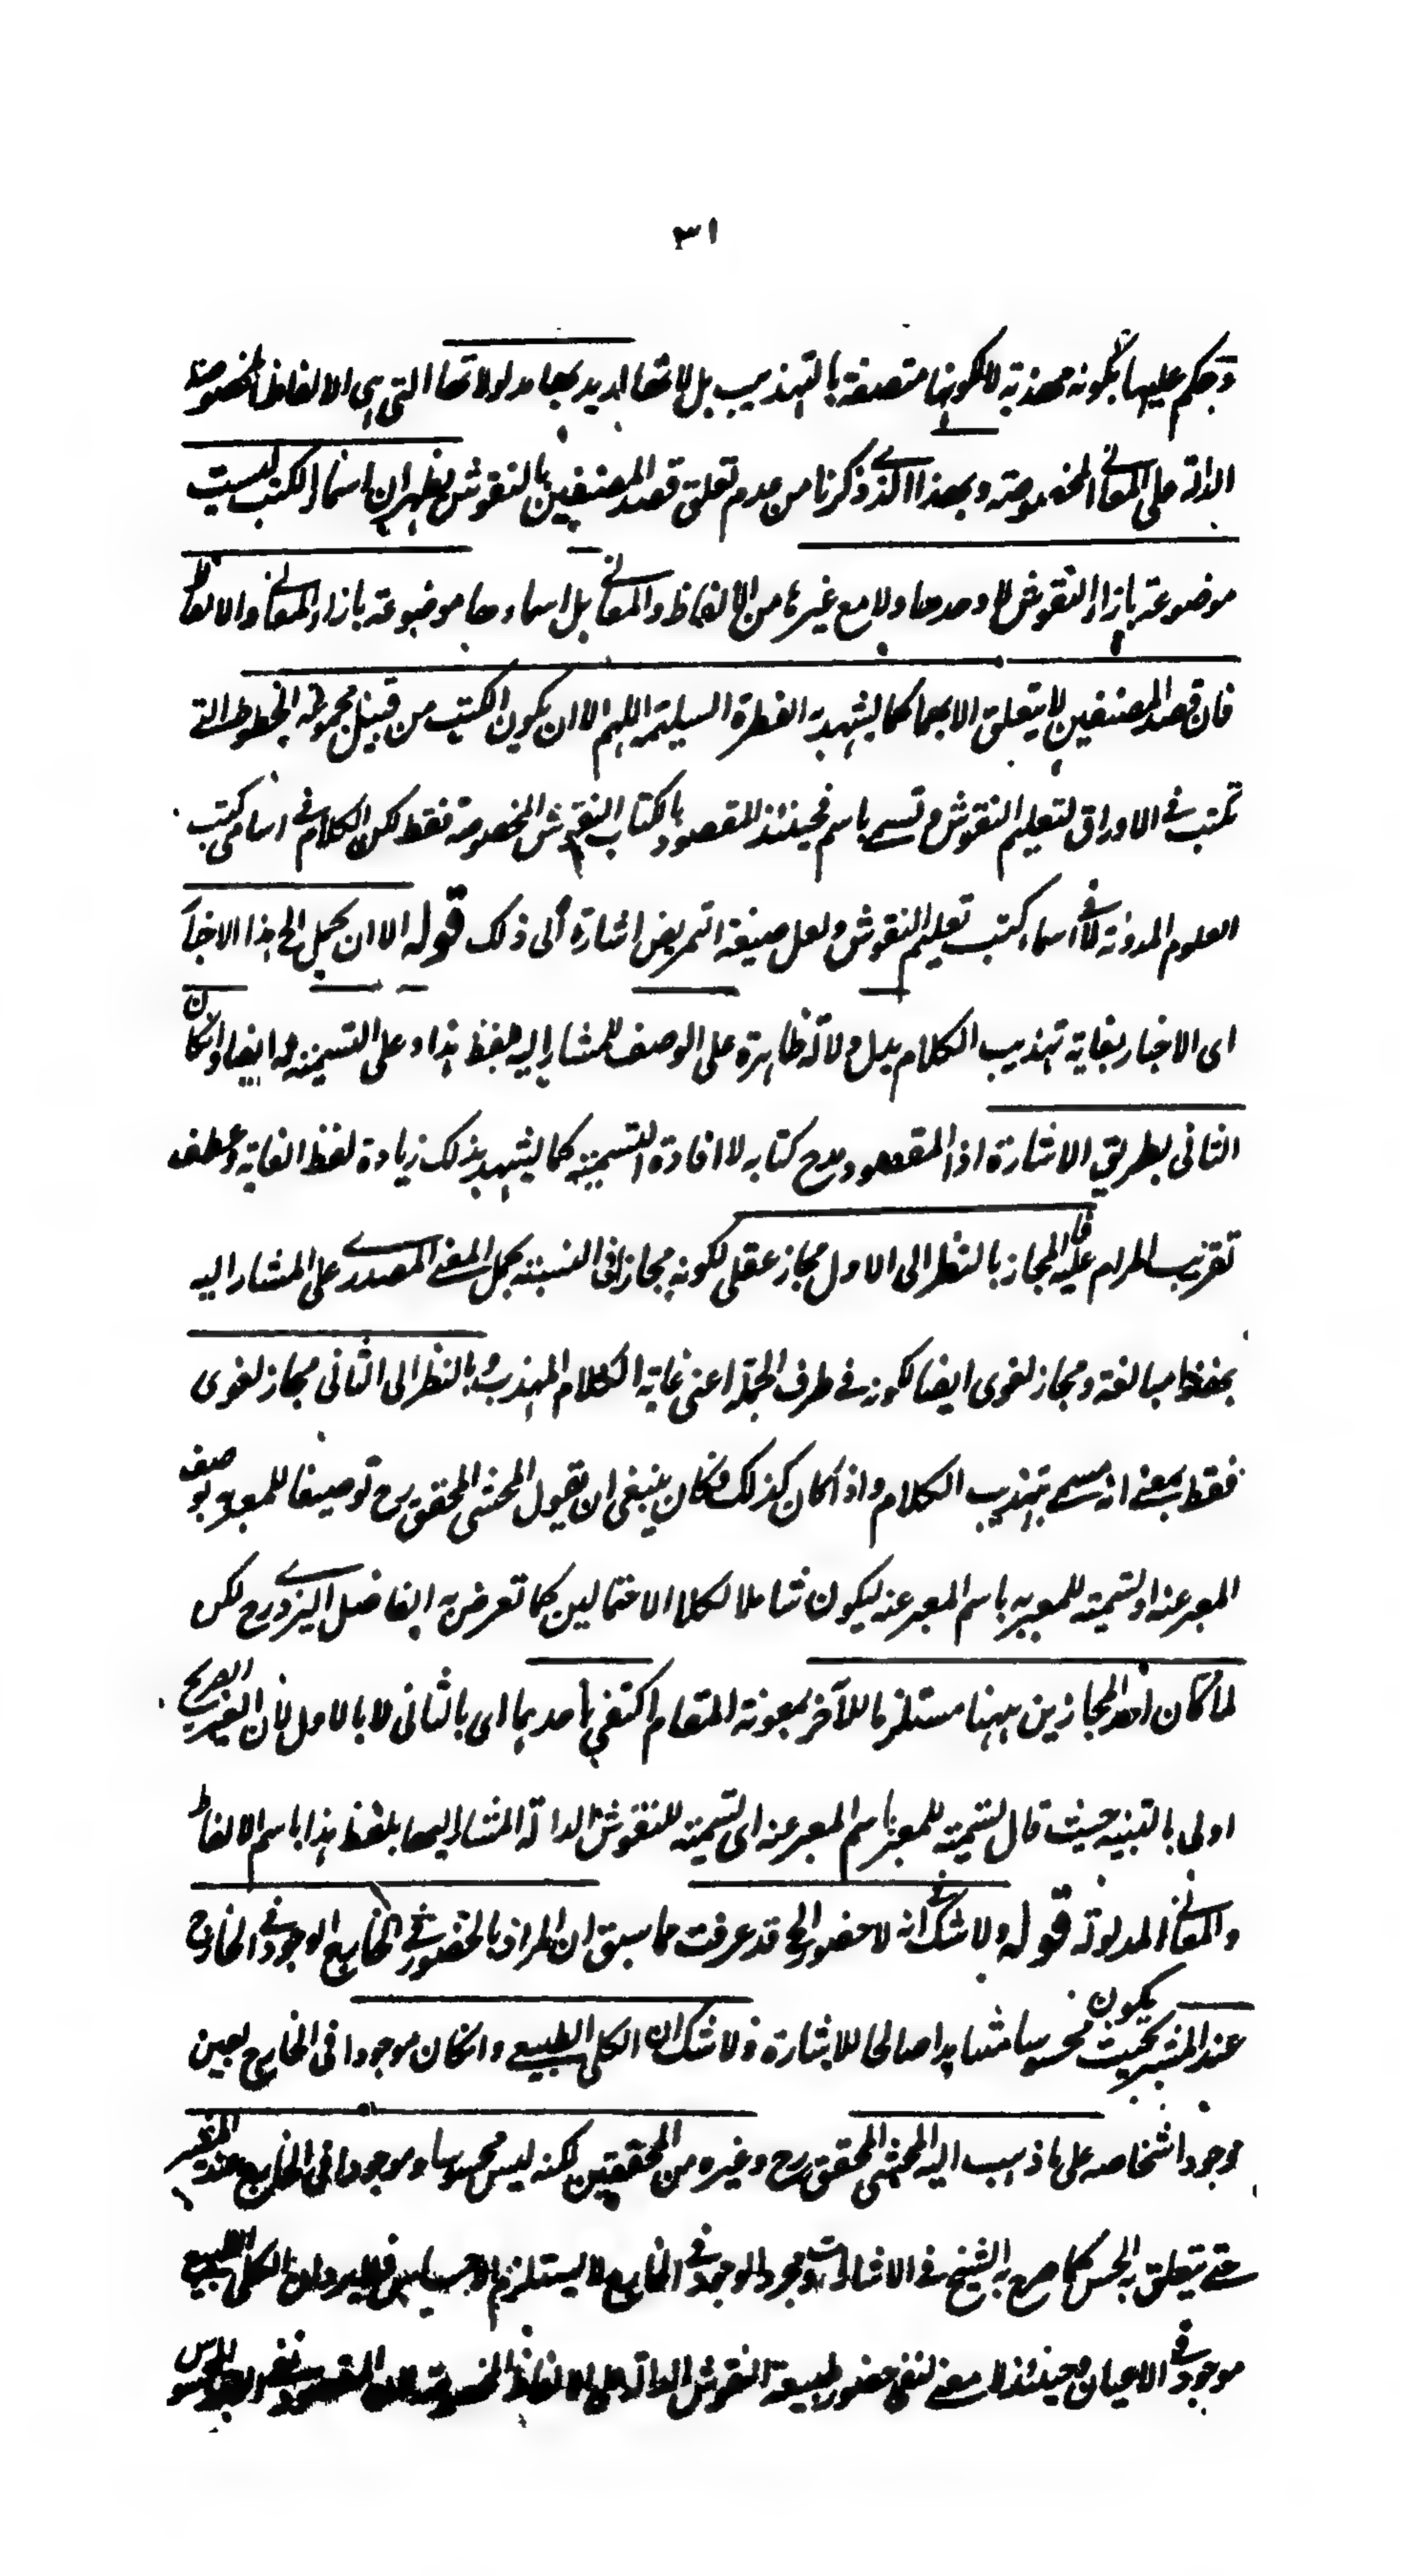 ٣١
وحكم عليها بكونه مهذبة لا لكونها متصفة بالتهذيب بل لانها اريد بها مدلولاتها التى هى الالفاظ المخصوصة
الدالة على المعانى المخصوصة وبهذا الذى ذكرنا من عدم تعلق قصد المصنفين بالنقوش يظهر ان اسماء الكتب ليست
موضوعة بازاء النقوش لا وحدها ولا مع غيرها من الالفاظ والمعانى بل اسماءها موضوعة بازاء المعانى والالفاظ
فان قصد المصنفين لا يتعلق الا بهما كما يشهد به الفطرة السليمة اللهم الا ان يكون الكتب من قبيل مجموعة الخطوط التى
تكتب فى الاوراق لتعليم النقوش وتسمى باسم فحينئذ المقصود بالكتاب النقوش المخصوصة فقط لكن الكلام فى اسامى كتب
العلوم المدونة لا فى اسماء كتب تعليم النقوش ولعل صيغة التمريض اشارة الى ذلك قوله الا ان يحمل الخ هذا الاخبار
اى الاخبار بغاية تهذيب الكلام يدل دلالة ظاهرة على الوصف للمشار اليه بلفظ هذا وعلى التسمية له ايضا وان كان
الثانى بطريق الاشارة اذ المقصود مدح كتابه لا افادة التسمية كما يشهد بذلك زيادة لفظ الغاية وعطف
تقريب المرام عليه فالمجاز بالنظر الى الاول مجاز عقلى لكونه مجازا فى النسبة بحمل المعنى المصدرى على المشار اليه
بلفظ هذا مبالغة ومجاز لغوى ايضا لكونه فى طرف الجملة اعنى غاية الكلام المهذب وبالنظر الى الثانى مجاز لغوى
فقط بمعنى انه مسمى بتهذيب الكلام واذا كان كذلك فكان ينبغى ان يقول المحشى المحقق رح توصيفا للمعبر به بوصف
المعبر عنه او تسمية للمعبر به باسم المعبر عنه ليكون شاملا لكلا الاحتمالين كما تعرض به الفاضل اليزدى رح لكن
لما كان احد المجازين ههنا مستلزما للآخر بمعونة المقام اكتفى باحدهما اى بالثانى لا بالاول لان الغير الصريح
اولى بالتنبيه حيث قال تسمية للمعبر باسم المعبر عنه اى تسمية للنقوش الدالة المشار اليها بلفظ هذا باسم الالفاظ
والمعانى المدلولة قوله ولا شك فى انه لا حضور الخ قد عرفت مما سبق ان المراد بالحضور فى الخارج الوجود فى الخارج
عند المشير بحيث يكون محسوسا مشاهدا صالحا للاشارة ولا شك ان الكلى الطبيعى وان كان موجودا فى الخارج بعين
وجود اشخاصه على ما ذهب اليه المحشى المحقق رح وغيره من المحققين لكنه ليس محسوسا وموجودا فى الخارج عند المشير
حتى يتعلق به الحس كما صرح به الشيخ فى الاشارات ومجرد الوجود فى الخارج لا يستلزم فلا يرد ان الكلى الطبيعى
موجود فى الاعيان وحينئذ لا معنى لنفى حضور طبيعة النقوش الدالة على الالفاظ المخصوصة لان المقصود